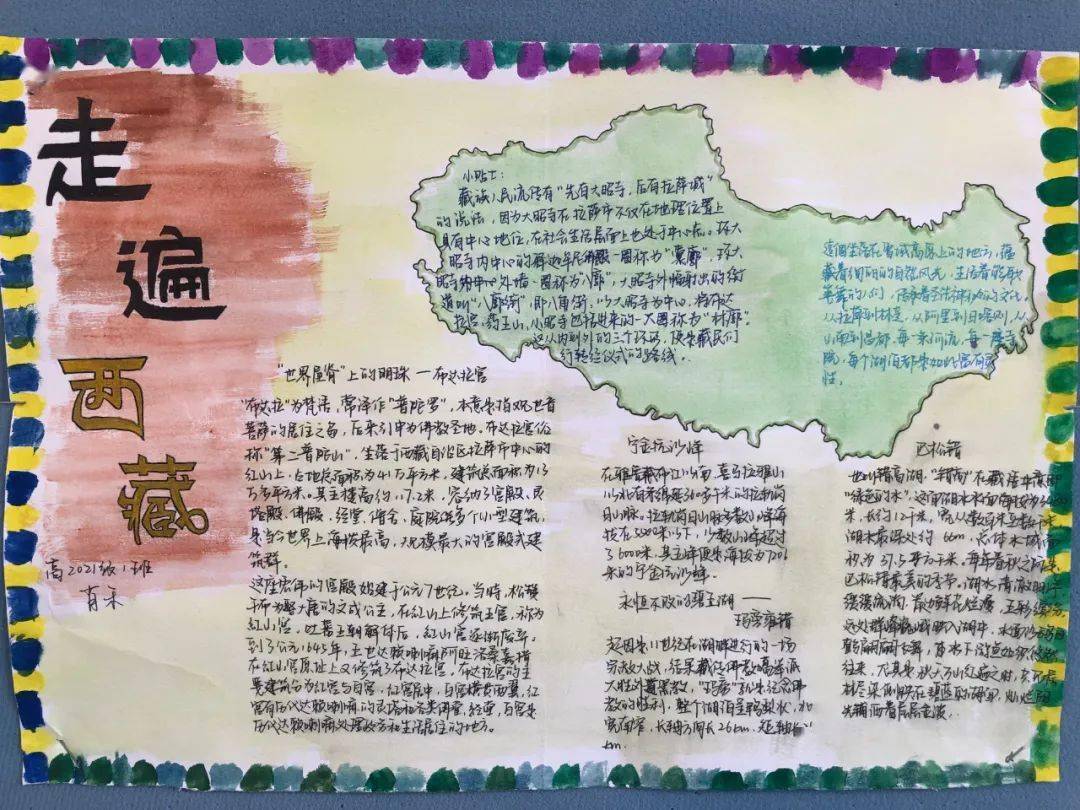 走遍西藏
高2021级1班
小贴士：
藏族人民流传有“先有大昭寺，后有拉萨城”
的说法，因为大昭寺在拉萨市不仅在地理位置上
具有中心地位，在社会生活层面上也处于中心点。环大
昭寺内中心的释迦牟尼佛殿一圈称为“囊廓”，环大
昭寺外墙一圈称为“八廓”，大昭寺外辐射出的街
道叫“八廓街”，即八角街，以大昭寺为中心，将布达
拉宫、药王山、小昭寺包括进来的一大圈称为“林廓”。
这从内到外的三个环形，便是藏民们
行转经仪式的路线。
这个生活在雪域高原上的地方，蕴
藏着绚丽的自然风光，生活着能歌
善舞的人们，
从拉萨到林芝，从阿里到日喀则，从
山南到昌都，每一条河流，每一座寺
院，每个湖泊都是如此富有灵
性。
“世界屋脊”上的明珠—布达拉宫
“布达拉”为梵语，常译作“普陀罗”，本意是指观世音
菩萨的居住之岛，后来引申为佛教圣地，布达拉宫俗
称“第二普陀山”，坐落于西藏自治区拉萨市中心的
红山上，占地总面积为41万平方米，建筑总面积为13
万多平方米，其主楼高约117.2米，容纳了宫殿、灵
塔殿、佛殿、经堂、僧舍、庭院诸多个小型建筑，
是当今世界上海拔最高，规模最大的宫殿式建
筑群。
这座宏伟的宫殿始建于公元7世纪。当时，松赞
干布为娶大唐的文成公主，在红山上修筑王宫，称为
红山宫，吐蕃王朝解体后，红山宫逐渐废弃。
到了公元1645年，五世达赖喇嘛阿旺洛桑嘉措
在红山宫原址上又修筑了布达拉宫，布达拉宫的主
要建筑分为红宫与白宫，红宫居中，白宫横贯两翼，红
宫有历代达赖喇嘛的灵塔和各类佛堂、经堂，白宫是
历代达赖喇嘛处理政务和生活居住的地方。
宁金抗沙峰
在雅鲁藏布江以南，喜马拉雅山
以北有着绵延多千米的拉轨岗
日山脉。拉轨岗日山脉多数山峰海
拔在以下，少数山峰超过
6000米，其主峰便是海拔为7206
米的宁金抗沙峰。
永恒不败的碧玉湖——
玛旁雍错
起因是11世纪在湖畔进行的一场
宗教大战，结果藏传佛教噶举派
大胜外道黑教，“玛旁”
教的胜利，整个湖泊呈鸭梨状，北
宽南窄，长轴方向长26km，短轴长21
km。
巴松错
也叫措高湖，“措高”在藏语中意即
“绿色的水”，这片湖水水面海拔为
米，长约12千米，宽从数百米至数千米
湖水最深处约66m，总体水域面
积为37.5平方千米。每年春秋之间是
巴松错最美的季节，湖水清澈
缓缓流淌，最为鲜花烂漫，
远处群峰
往来，尤其是秋天万山红遍之时，